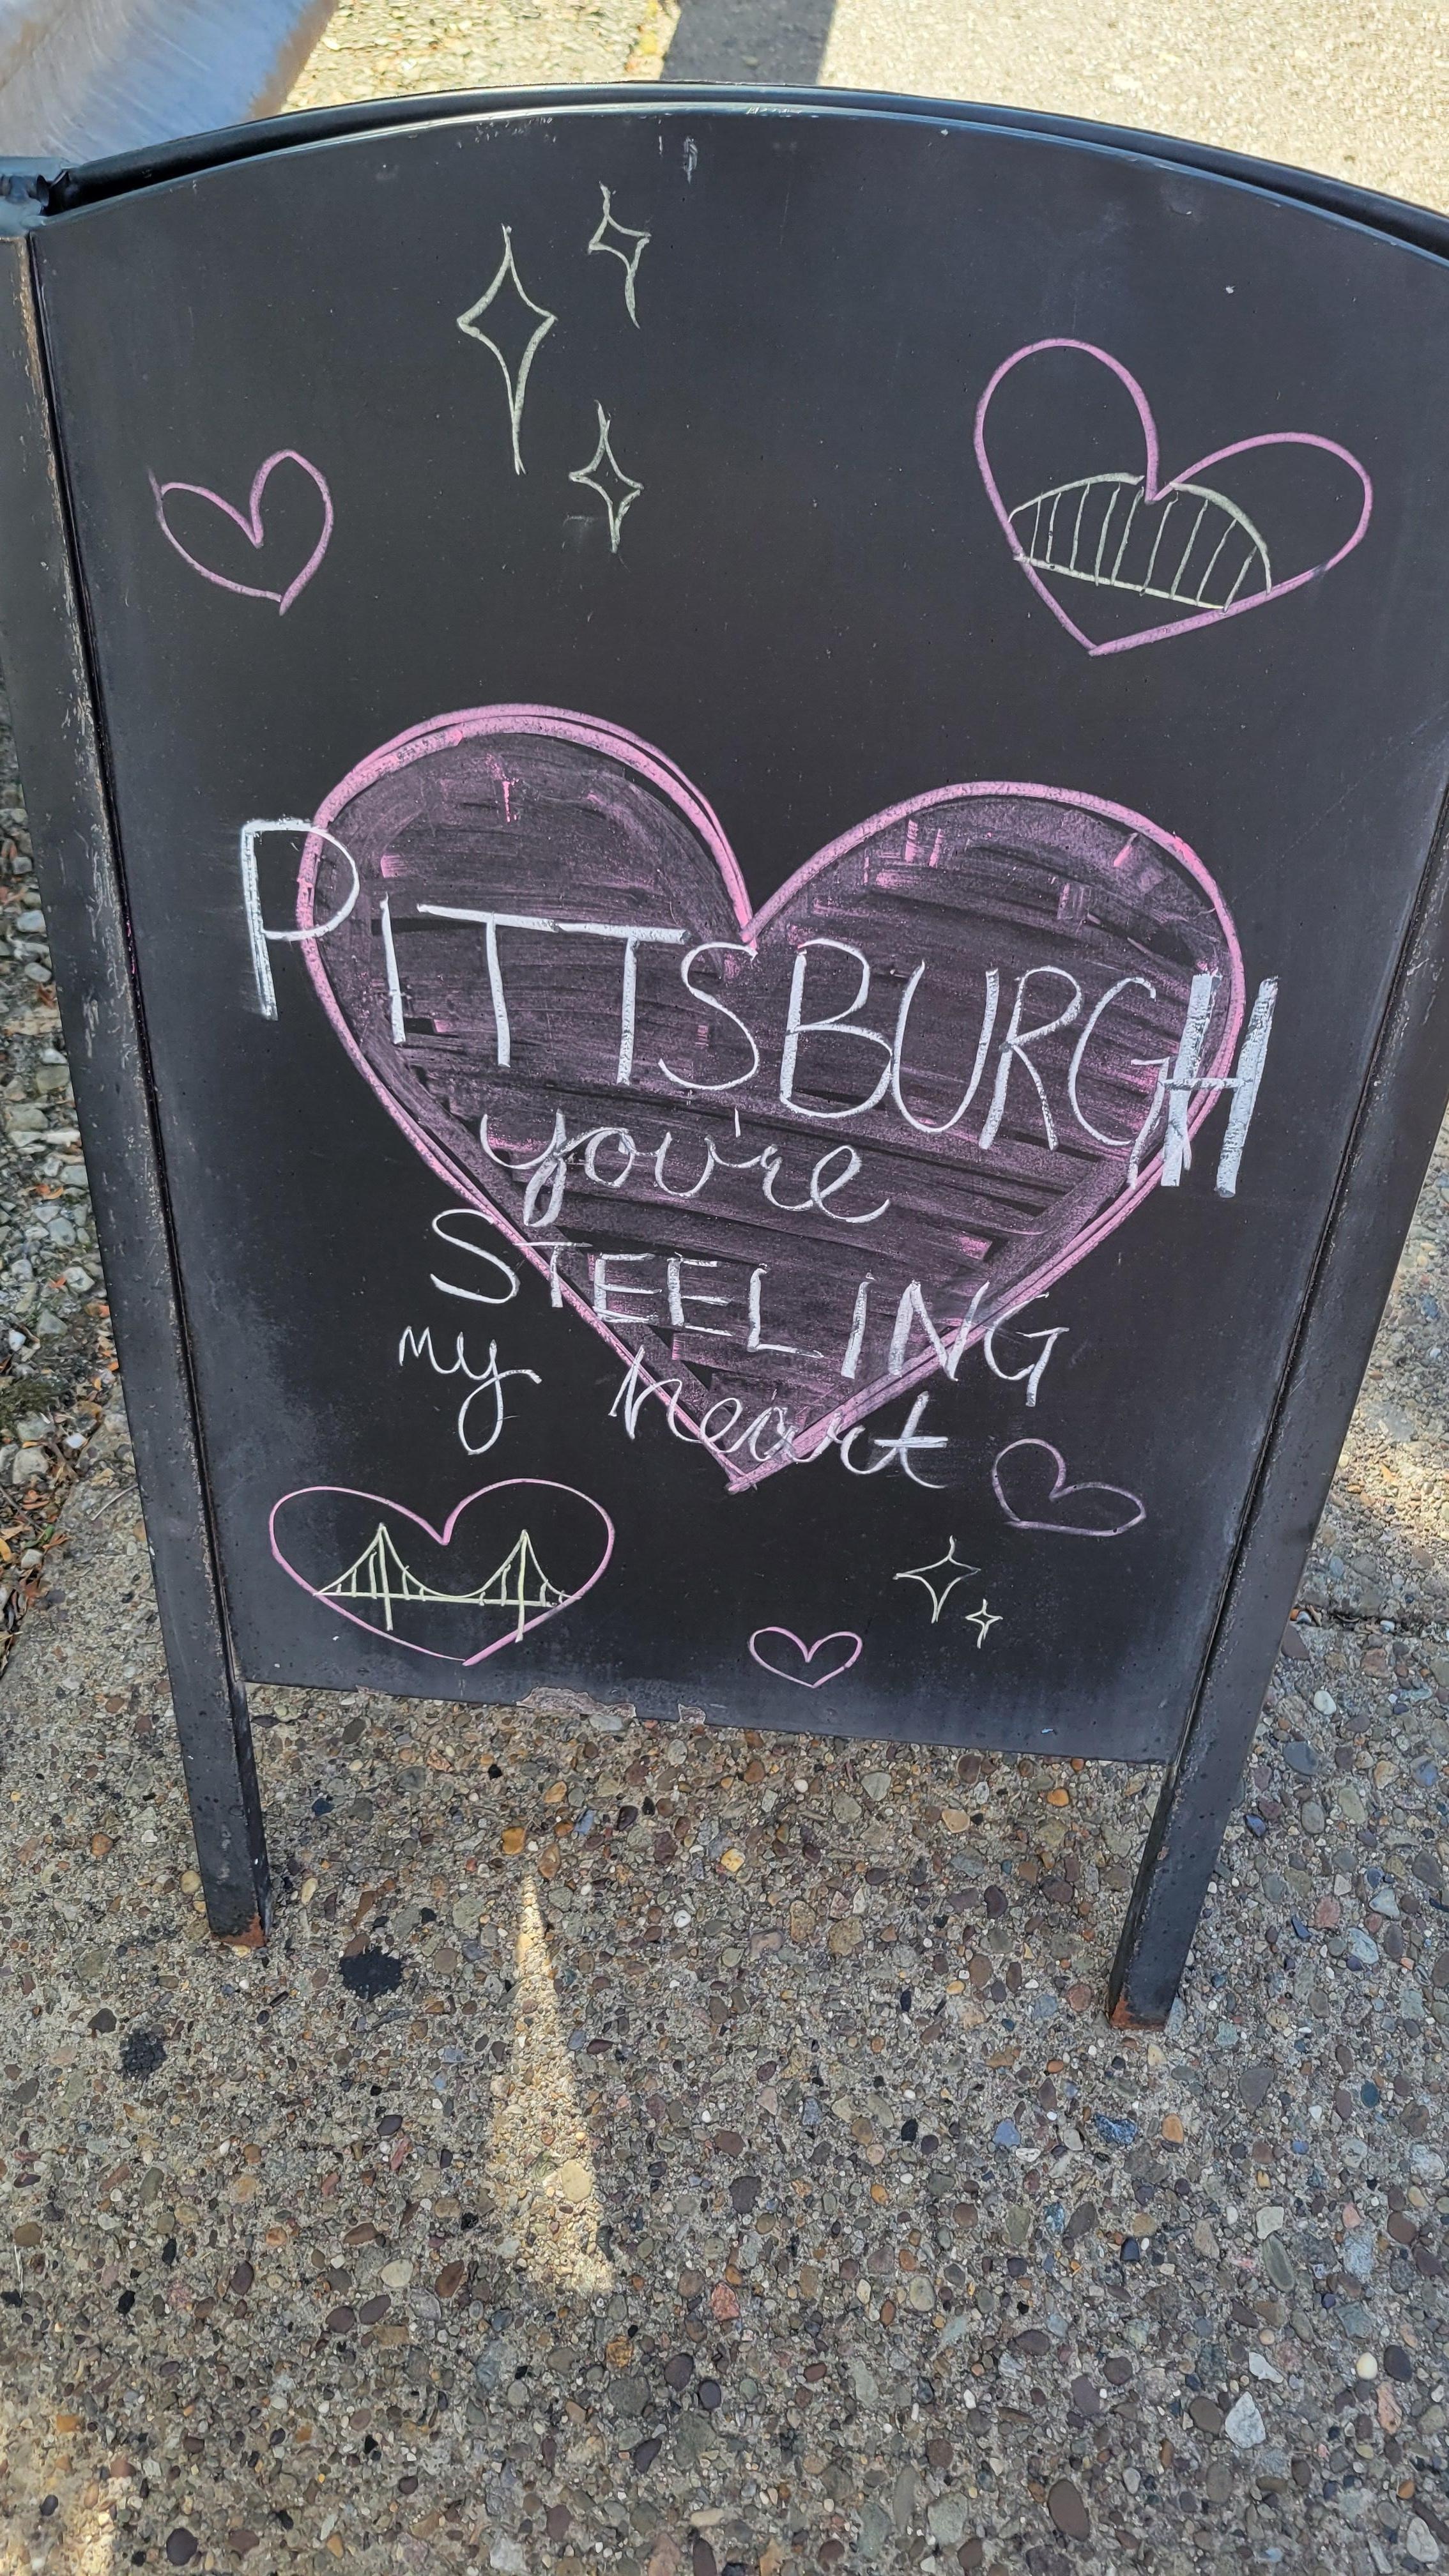 PITTSBURGH
you're
STEELING
my heart